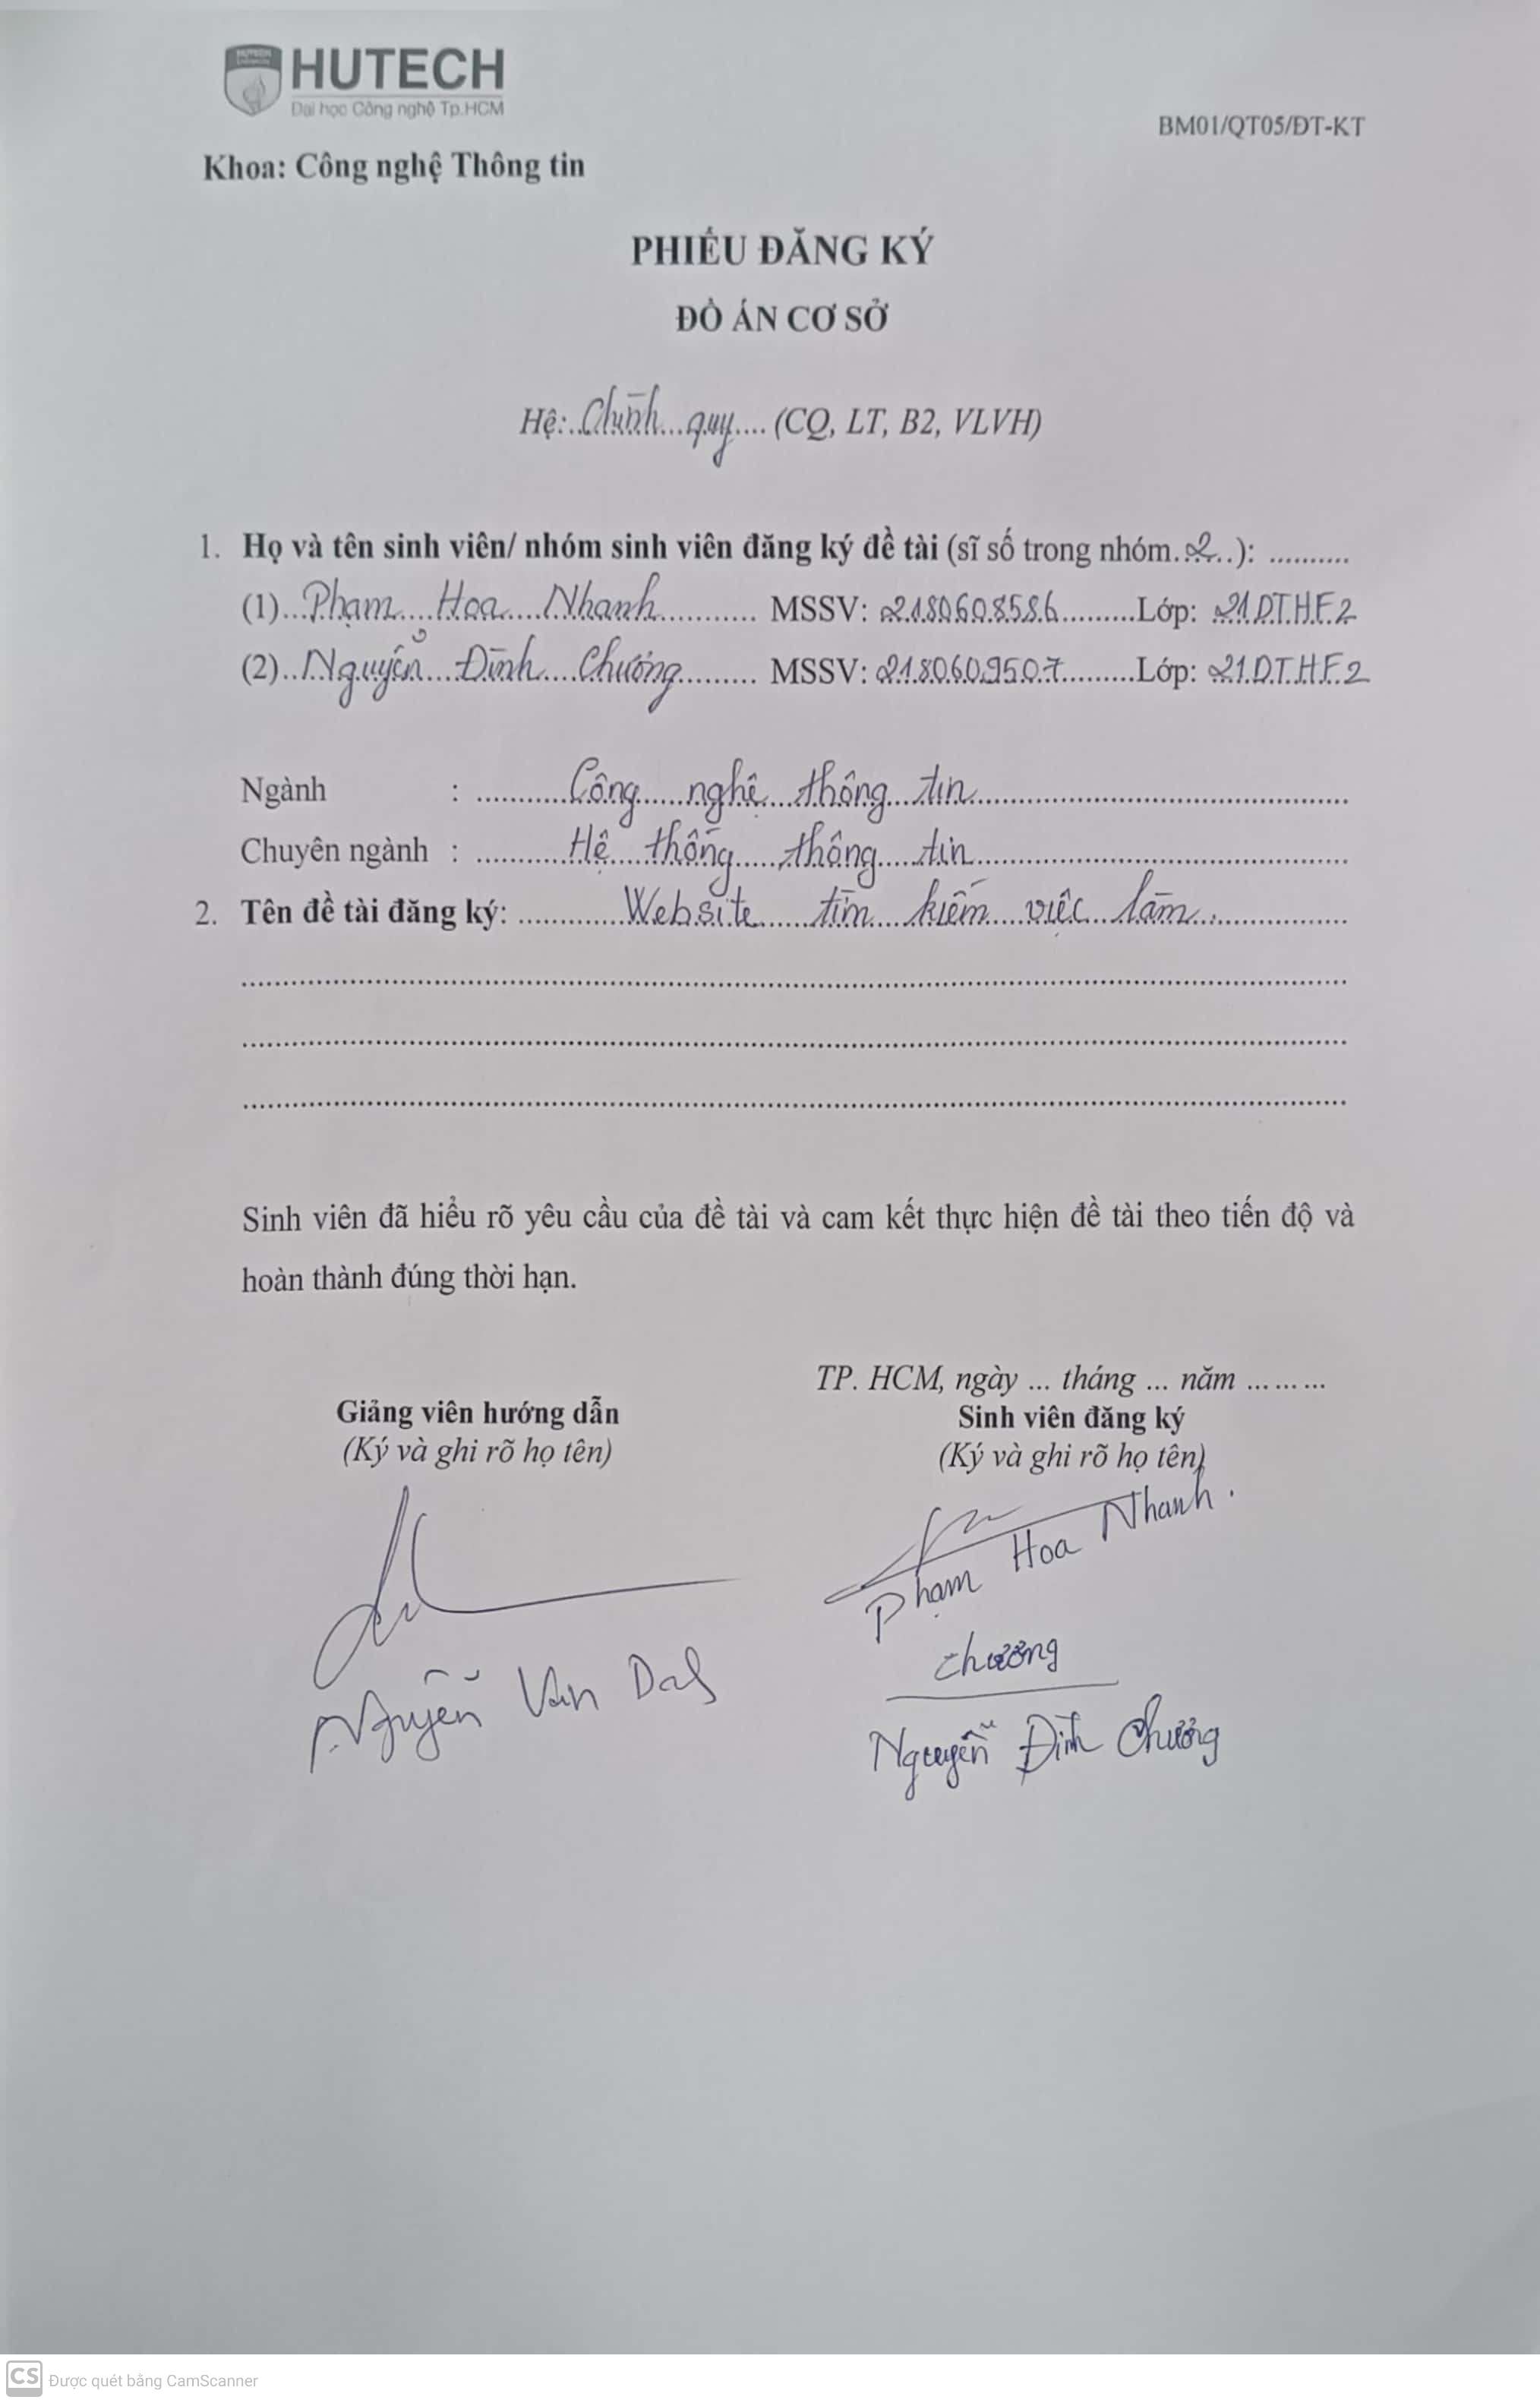 HUTECH
Đại học Công nghệ Tp.HCM
BM01/QT05/ĐT-KT
Khoa: Công nghệ Thông tin
PHIẾU ĐĂNG KÝ
ĐỒ ÁN CƠ SỞ
Hệ:..Chính...quy.... (CQ, LT, B2, VLVH)
1. Họ và tên sinh viên/ nhóm sinh viên đăng ký đề tài (sĩ số trong nhóm..2..): ..........
(1)...Phạm....Hoa....Nhanh............ MSSV: 2180608586.........Lớp: 21DTHF2
(2)...Nguyễn....Đình....Chương......... MSSV: 2180609507.........Lớp: 21DTHF2
Ngành : ...........Công......nghệ....thông....tin...............................................
Chuyên ngành : ...........Hệ....thống.....thông....tin...............................................
2. Tên đề tài đăng ký: .............Website......tìm....kiếm....việc...làm..................
Sinh viên đã hiểu rõ yêu cầu của đề tài và cam kết thực hiện đề tài theo tiến độ và
hoàn thành đúng thời hạn.
TP. HCM, ngày ... tháng ... năm .........
Giảng viên hướng dẫn
Sinh viên đăng ký
(Ký và ghi rõ họ tên)
(Ký và ghi rõ họ tên)
Phạm Hoa Nhanh.
Chương
Nguyễn Văn
Nguyễn Đình Chương
CS Được quét bằng CamScanner